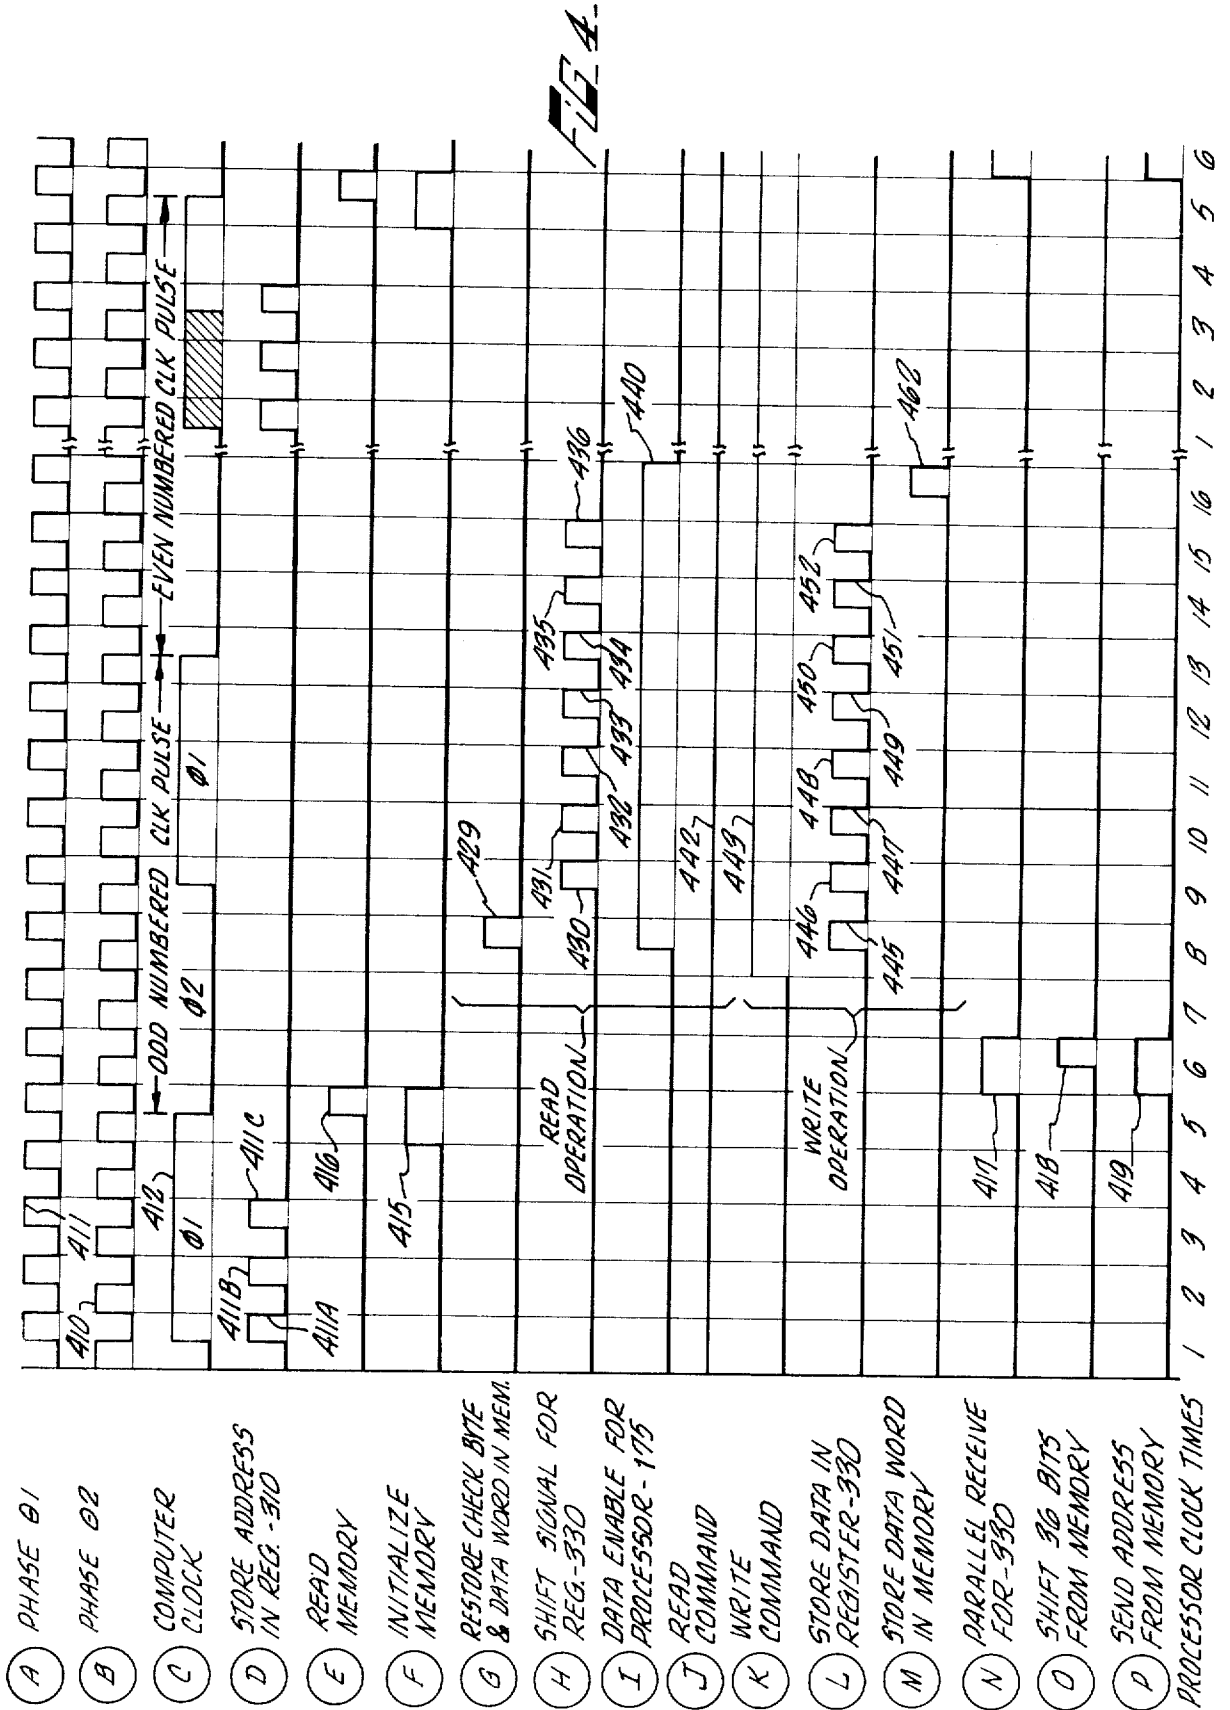 FIG. 4.
A PHASE Ø1
B PHASE Ø2
C COMPUTER
CLOCK
D STORE ADDRESS
IN REG.-310
E READ
MEMORY
F INITIALIZE
MEMORY
G RESTORE CHECK BYTE
& DATA WORD IN MEM.
H SHIFT SIGNAL FOR
REG.-330
I DATA ENABLE FOR
PROCESSOR-175
J READ
COMMAND
K WRITE
COMMAND
L STORE DATA IN
REGISTER-330
M STORE DATA WORD
IN MEMORY
N PARALLEL RECEIVE
FOR-330
O SHIFT 36 BITS
FROM MEMORY
P SEND ADDRESS
FROM MEMORY
PROCESSOR CLOCK TIMES
410
411
412
Ø1
ODD NUMBERED CLK PULSE
EVEN NUMBERED CLK PULSE
Ø2
Ø1
411B
411A
411C
416
415
429
READ
OPERATION
430
431
432
433
434
435
436
440
442
443
WRITE
OPERATION
445
446
447
448
449
450
451
452
462
417
418
419
1 2 3 4 5 6 7 8 9 10 11 12 13 14 15 16 1 2 3 4 5 6